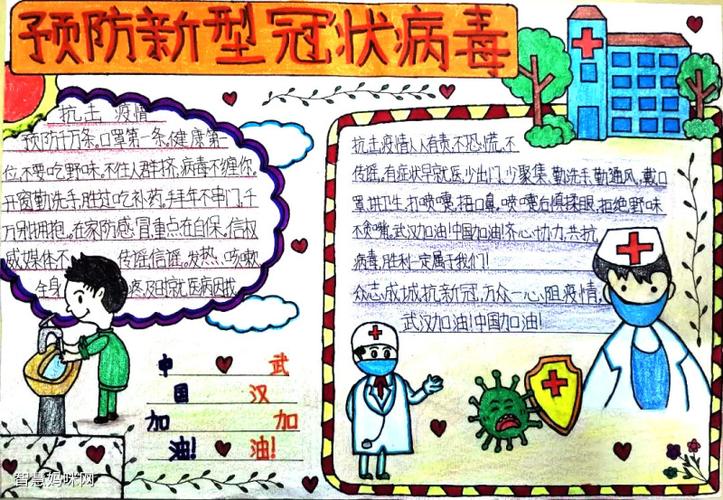 预防新型冠状病毒
抗击疫情
预防千万条,口罩第一条,健康第一
位,不要吃野味,不住人群挤,病毒不缠你,
开窗勤洗手,胜过吃补药,拜年不串门,千
万别拥抱,在家防感冒,重点在自保,信权
威媒体不 传谣信谣。发热、咳嗽
全身 疼,及时就医病因找
中 武
国 汉
加 加
油! 油!
抗击疫情人人有责,不恐慌,不
传谣。有症状早就医,少出门,少聚集,勤洗手,勤通风,戴口
罩,讲卫生,打喷嚏,捂口鼻,喷嚏后慎揉眼,拒绝野味
不贪嘴,武汉加油!中国加油!齐心协力,共抗
病毒,胜利一定属于我们!!
众志成城抗新冠,万众一心阻疫情。
武汉加油!中国加油!
智慧妈咪网